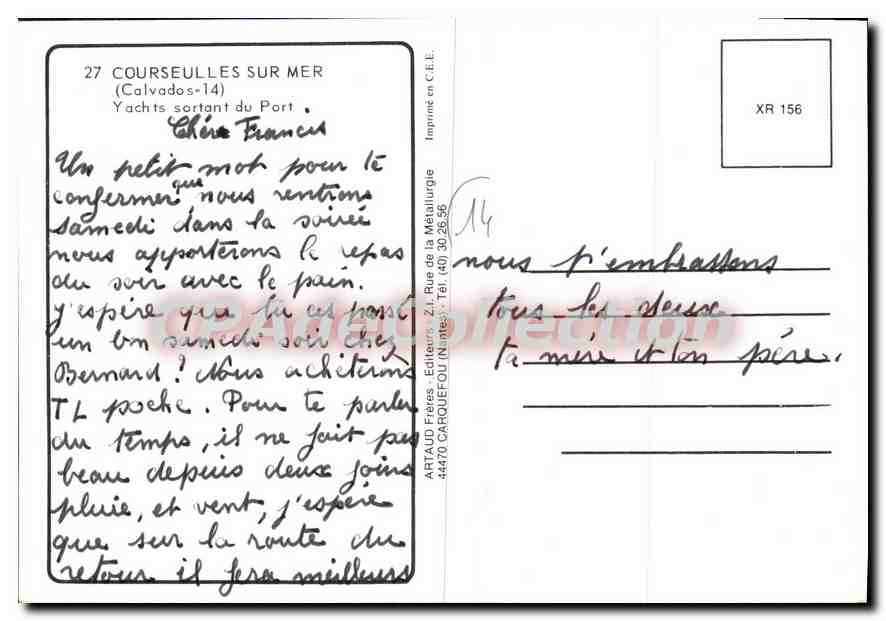 27 COURSEULLES SUR MER
(Calvados-14)
Yachts sortant du Port.
Chére Francis
Un petit mot pour te
confermer que nous rentrons
samedi dans la soirée
nous apporterons le repas
du soir avec le pain.
J'espère que tu as passé
un bon samedi soir chez
Bernard? Nous achèterons
TL poche. Pour te parler
du temps, il ne fait pas
beau depuis deux joins
pluie, et vent, j'espère
que sur la route du
retour il fera meilleurs
ARTAUD Frères - Editeurs - Z.I. Rue de la Métallurgie
44470 CARQUEFOU (Nantes) - Tél. (40) 30.26.56
Imprimé en C.E.E.
XR 156
14
nous t'embrassons
tous les deux
ta mére et ton pére.
CPArteCollection